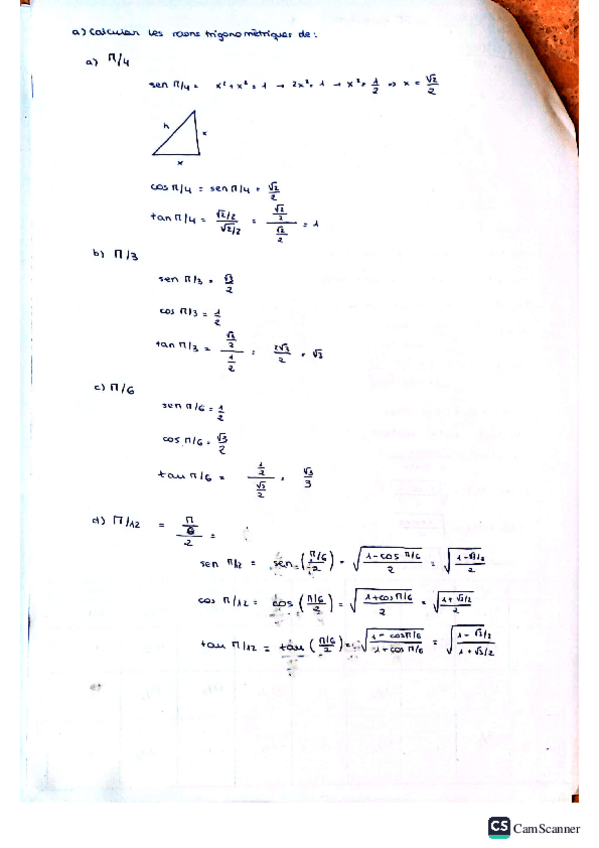 a) Calcular les raons trigonomètriques de:
a) π/4
sen π/4 = x² + x² = 1 → 2x² = 1 → x² = 1/2 => x = √2/2
h
x
x
cos π/4 = sen π/4 = √2/2
tan π/4 = √2/2 / √2/2 = √2/2 / √2/2 = 1
b) π/3
sen π/3 = √3/2
cos π/3 = 1/2
tan π/3 = √3/2 / 1/2 = 2√3/2 = √3
c) π/6
sen π/6 = 1/2
cos π/6 = √3/2
tan π/6 = 1/2 / √3/2 = √3/3
d) π/12 = π/6 / 2 =
sen π/12 = sen (π/6 / 2) = √(1 - cos π/6 / 2) = √(1 - √3/2 / 2)
cos π/12 = cos (π/6 / 2) = √(1 + cos π/6 / 2) = √(1 + √3/2 / 2)
tan π/12 = tan (π/6 / 2) = √(1 - cos π/6 / 1 + cos π/6) = √(1 - √3/2 / 1 + √3/2)
CS CamScanner